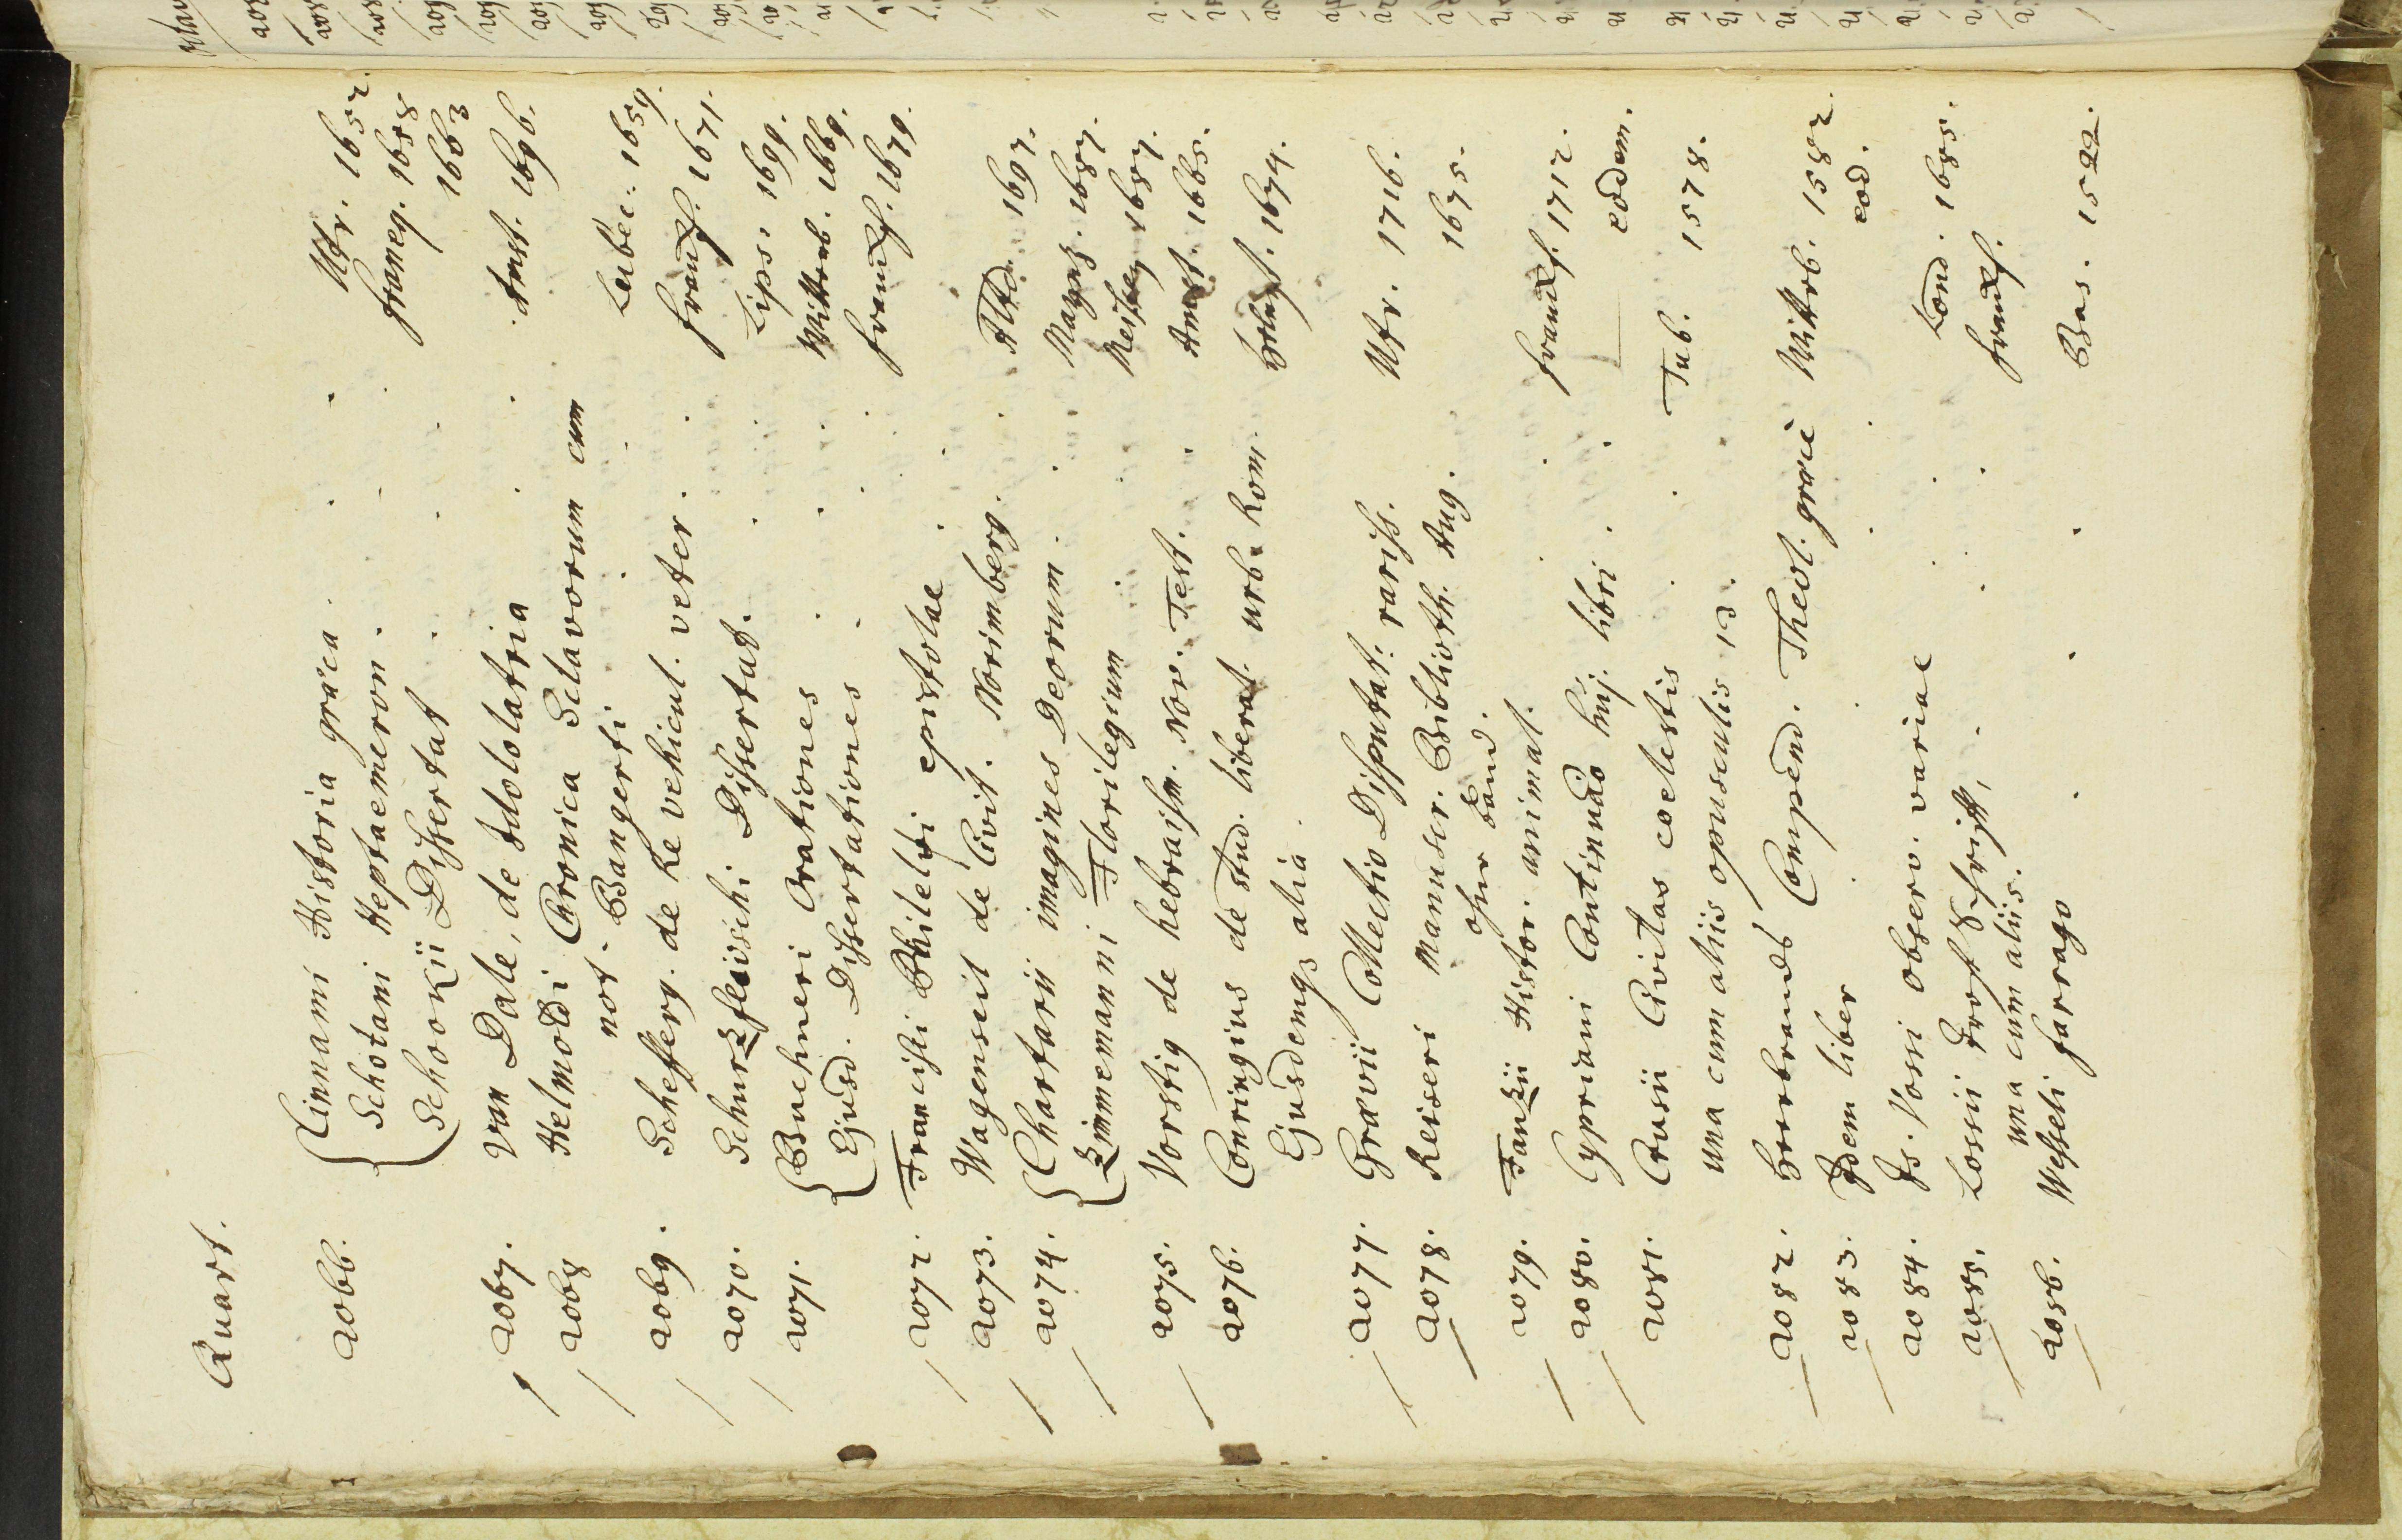 Quart.
2066. Cinnami Historia graeca . . . Utr. 1652.
Schotani Heptaemeron . . . franeq. 1658
Schookii Dissertat . . . 1663
2067. van Dale, de Idololatria . . Amst. 1696.
2068 Helmoldi Chronica Sclavorum cum
not. Bangerti . . Lubec. 1659.
2069. Schefferg. de Re vehicul. veter. . francf. 1671.
2070. Schurzfleischi Dissertat. . . Lips. 1699.
2071. Buchneri Orationes . . . Witteb. 1669.
Ejusd. Dissertationes . . . francf. 1679.
2072. Francisci Philelfi epistolae . .
2073. Wagenseil de Civit. Norimberg. . Altd. 1697.
2074. Chartarii imagines Deorum . . Mogunt. 1687.
Zinnemanni Florilegium . . 1687.
2075. Vorstig de hebraism. Nov. Test. . Amst. 1665.
2076. Conringius de stud. liberat. urb. Rom. Helmst. 1674.
Ejusdemq3 alia.
2077. Graevii Collectio Disputat. rariss. Utr. 1716.
2078. Reiseri Manuscr. Biblioth. Aug. 1675.
ohne band.
2079. Franzii Histor. animal. . . francf. 1712.
2080. Cypriani Continuao huj. libri . . eodem.
2081. Crusii Civitas coelestis . . Tub. 1578.
una cum aliis opusculis 12.
2082. Heerbrandt Compend. Theol. graece Witteb. 1582.
2083. Idem liber . . . . eod.
2084. Is. Vossi observ. variae . . Lond. 1685.
2085. Lossii Trostschrift, . . . francf.
una cum aliis.
2086. Wesseli farrago . . . Bas. 1522.